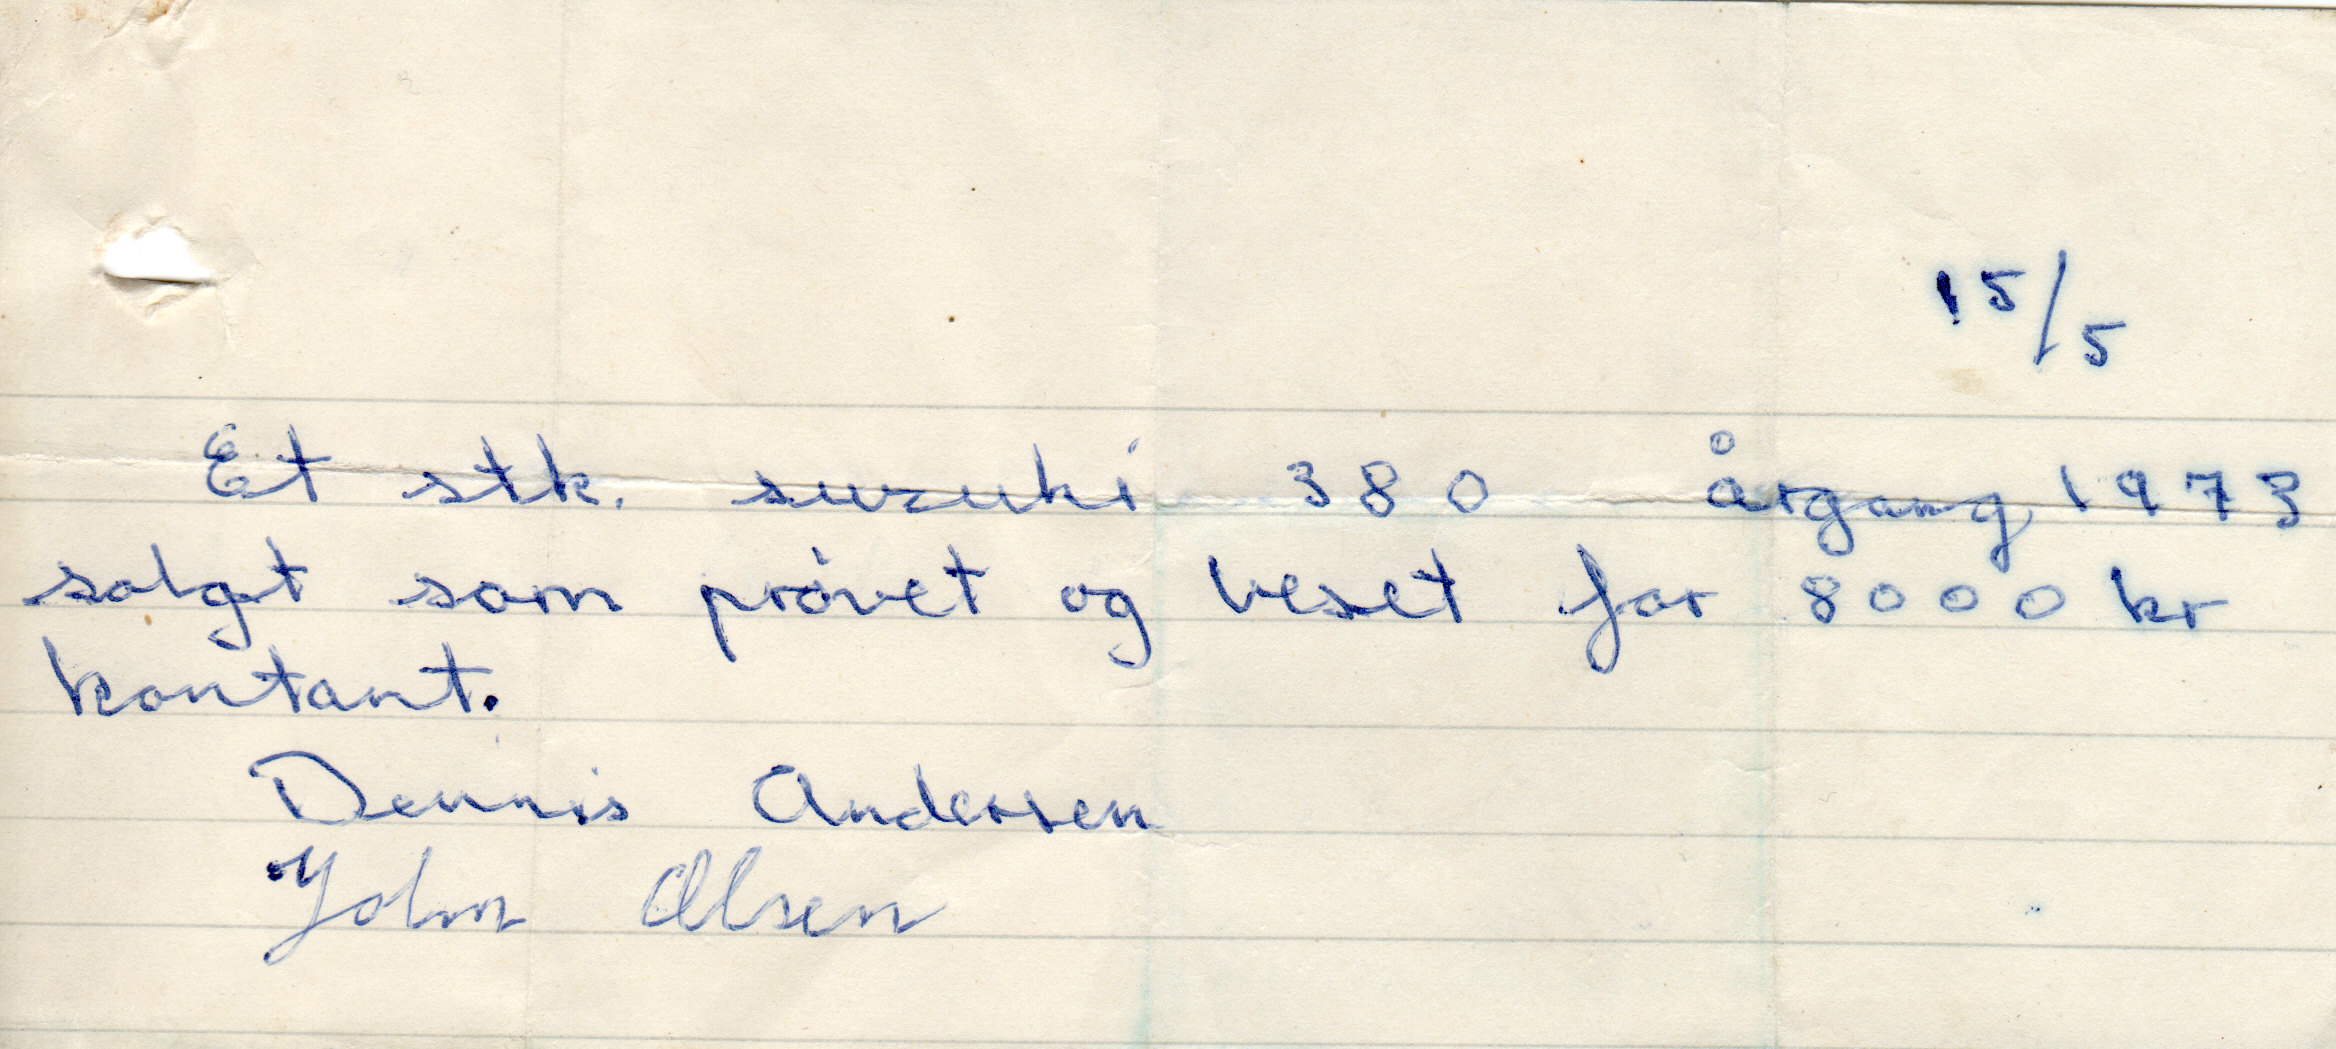 15/5
Et stk. suzuki 380 årgang 1973
solgt som prövet og beset for 8000 kr
kontant.
Dennis Andersen
John Olsen